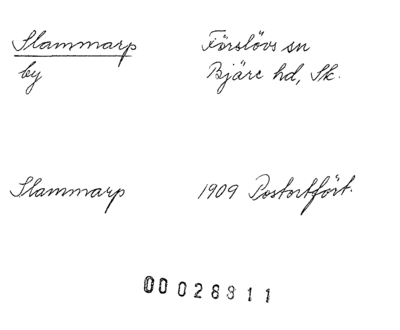 Slammarp Förslövs sn
by Bjäre hd, Sk.
Slammarp 1909 Postortför​t.
00028811